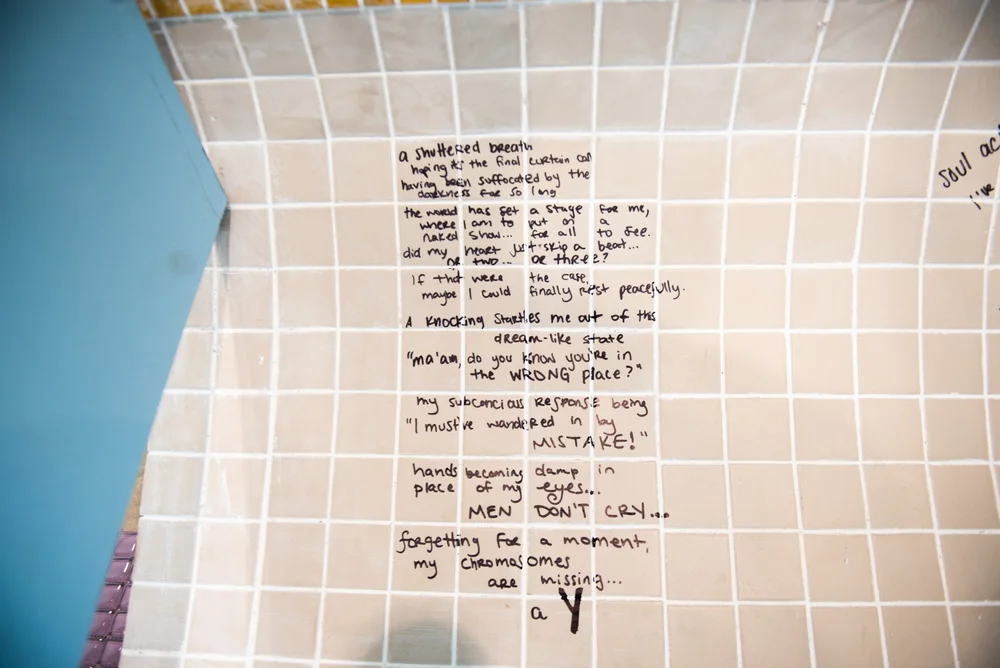 a shuttered breath
hoping it's the final curtain call
having been suffocated by the
darkness for so long
the world has set a stage for me,
where I am to put on a
naked show... for all to see.
did my heart just skip a beat...
or two... or three?
If that were the case,
maybe I could finally rest peacefully.
A knocking startles me out of this
dream-like state
"ma'am, do you know you're in
the WRONG place?"
my subconcious response being
"I must've wandered in by
MISTAKE!"
hands becoming damp in
place of my eyes...
MEN DON'T CRY...
forgetting for a moment,
my chromosomes
are missing...
a Y
soul
i've